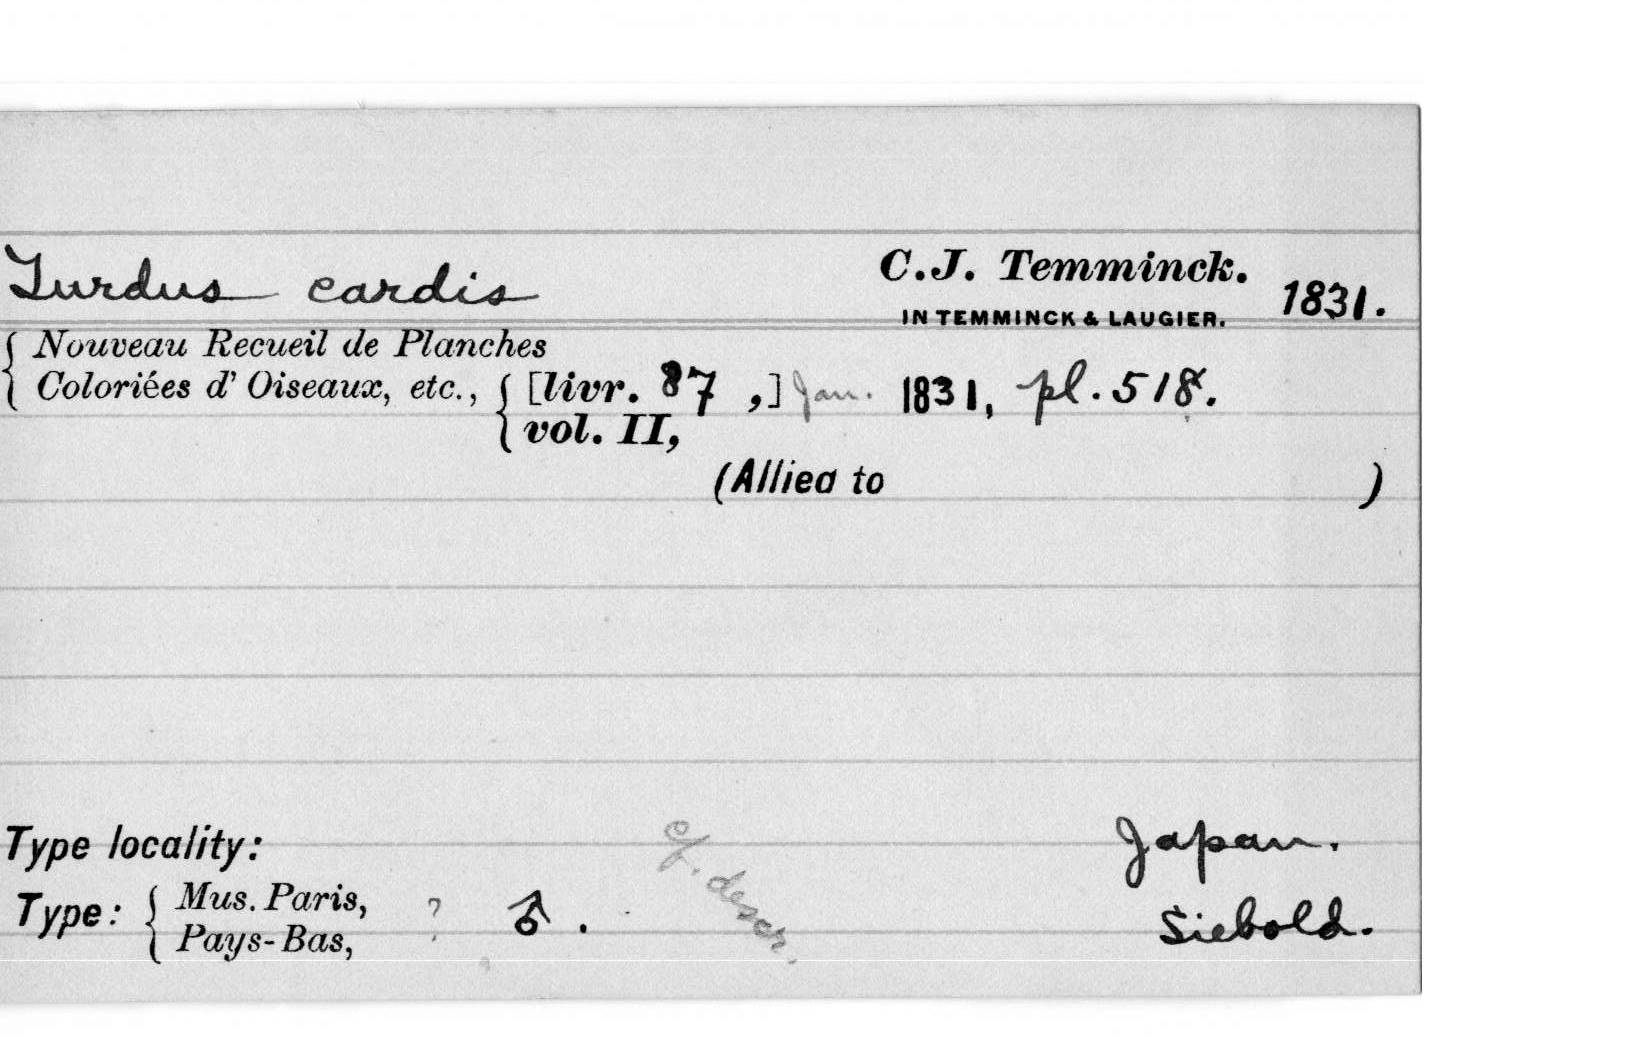 Turdus cardis C.J. Temminck. 1831.
IN TEMMINCK & LAUGIER.
Nouveau Recueil de Planches
Coloriées d' Oiseaux, etc., [livr. 87 ,] Jan. 1831, pl. 518.
vol. II,
(Allied to )
Type locality: Japan.
Type: Mus. Paris, ? ♂. cf. descr. Siebold.
Pays-Bas,